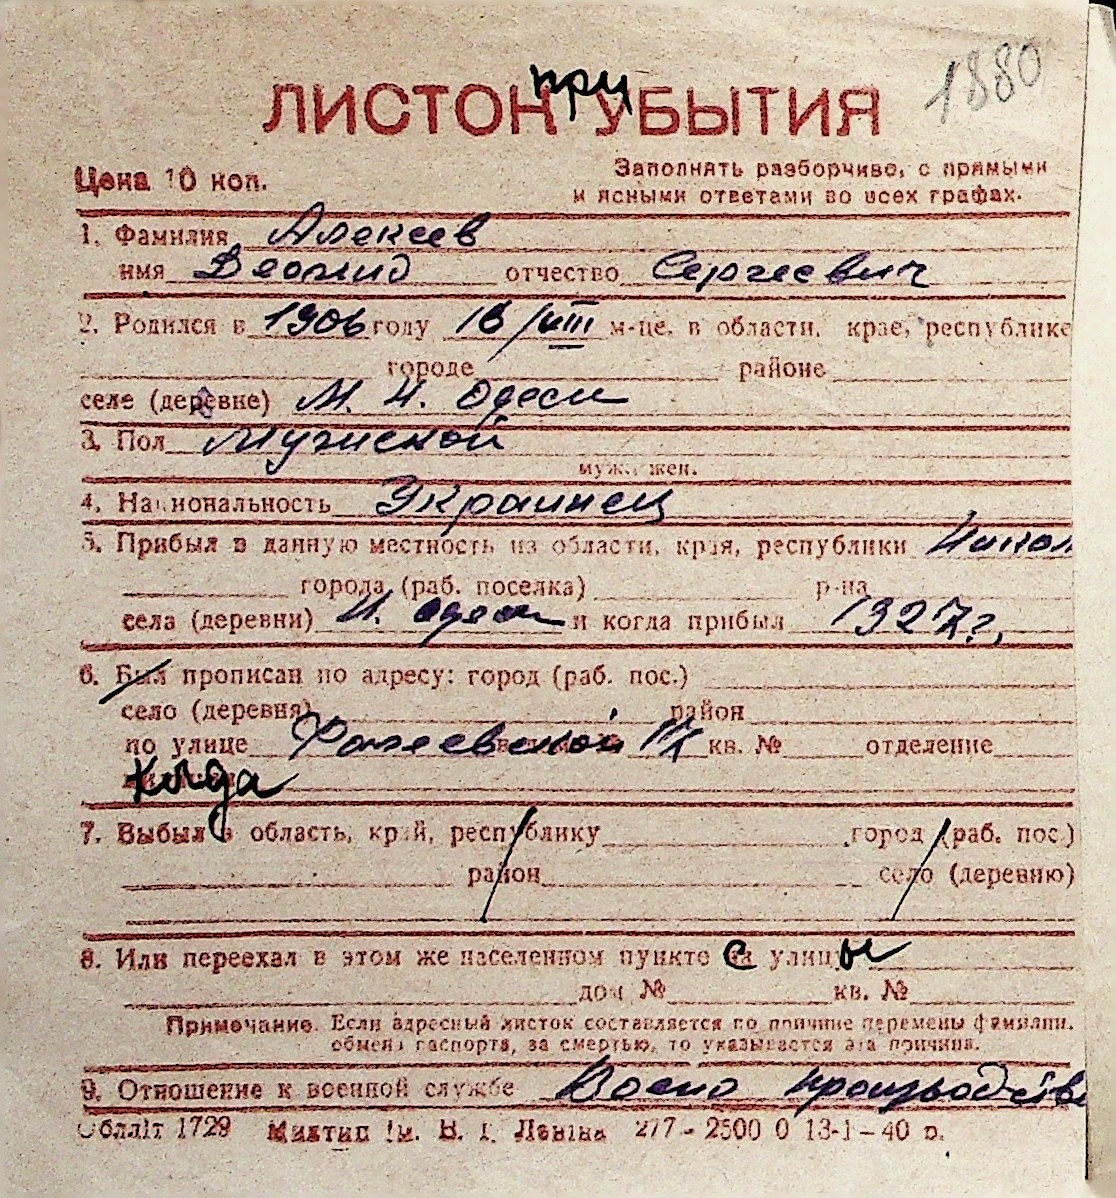 1880
при
ЛИСТОК УБЫТИЯ
Цена 10 коп.
Заполнять разборчиво, с прямыми
и ясными ответами во всех графах.
1. Фамилия Алексеев
имя Леонид отчество Сергеевич
2. Родился в 1906 году 16/VIII м-це, в области, крае, республике
городе районе
селе (деревне) М. Н. Одесы
3. Пол Мужской
муж., жен.
4. Национальность Украинец
5. Прибыл в данную местность из области, края, республики
города (раб. поселка) р-на
села (деревни) Н. Одесы и когда прибыл 1927 г.
6. Был прописан по адресу: город (раб. пос.)
село (деревня) район
по улице кв. № отделение
когда
7. Выбыл в область, край, республику город (раб. пос.)
район село (деревню)
8. Или переехал в этом же населенном пункте с улицы
дом № кв. №
Примечание. Если адресный листок составляется по причине перемены фамилии,
обмена паспорта, за смертью, то указывается эта причина.
9. Отношение к военной службе Воено производств
Облліт 1729 Миктип ім. В. І. Леніна 277-2500 0 13-1-40 р.